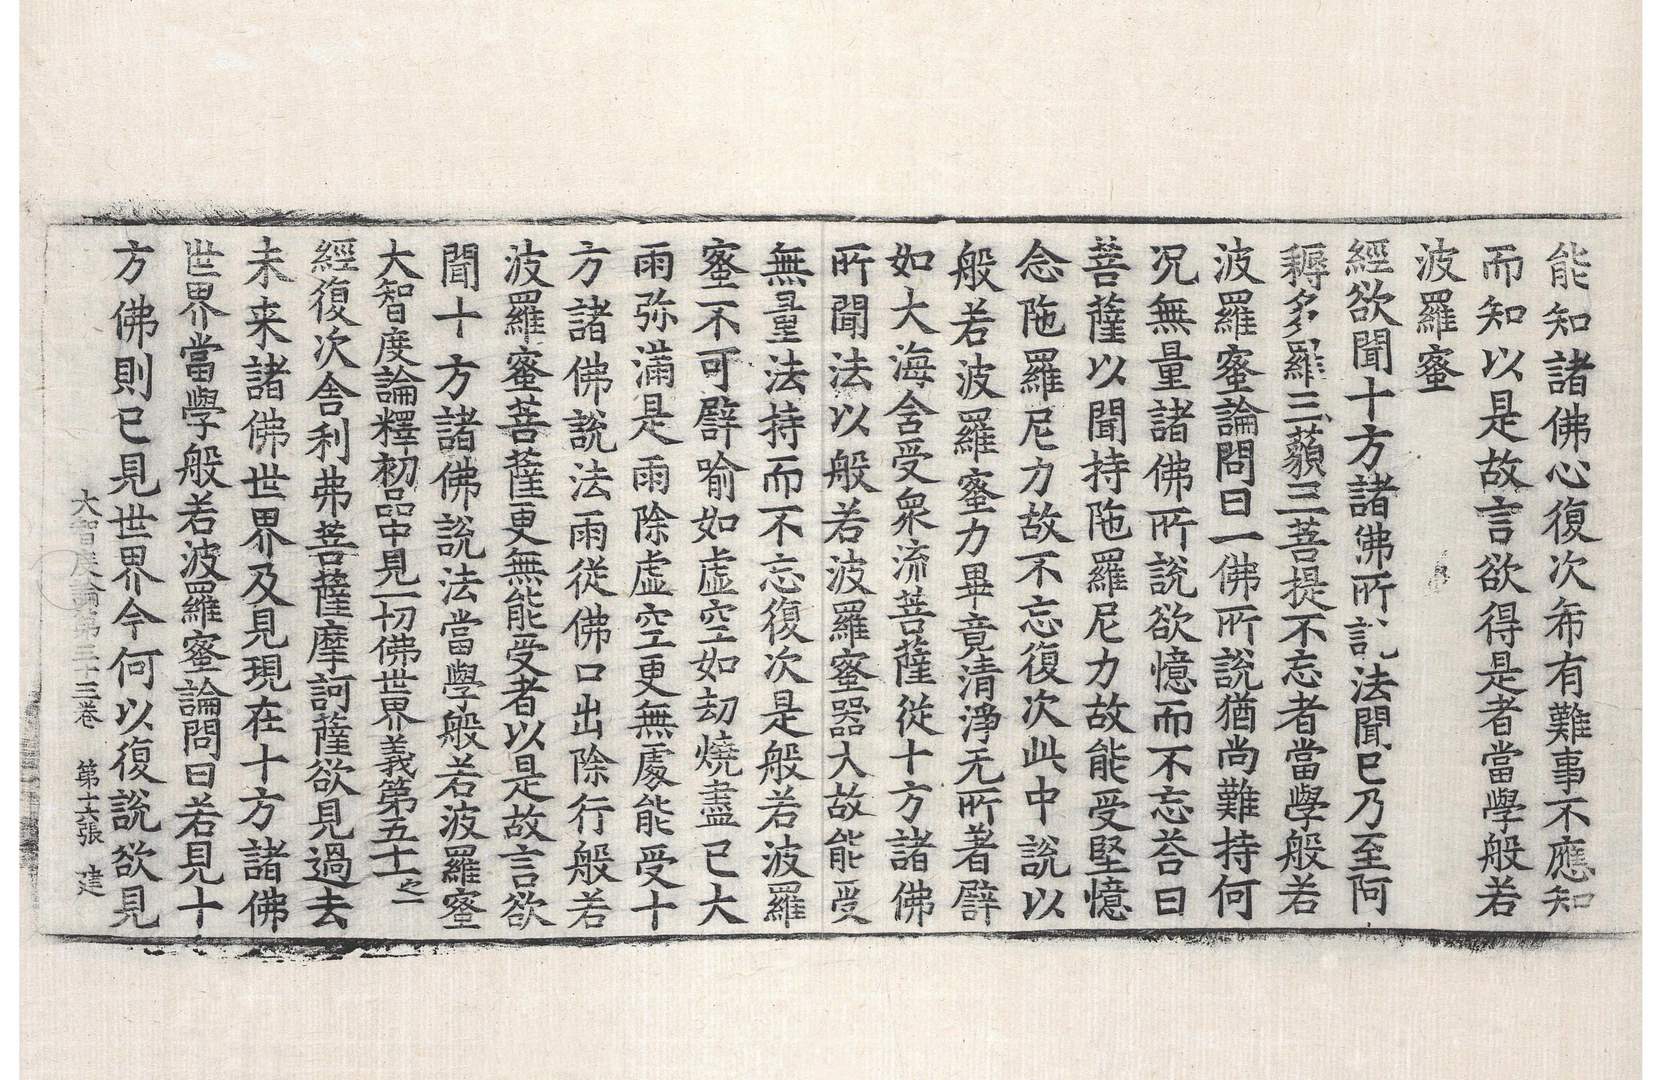 能知諸佛心復次希有難事不應知
而知以是故言欲得是者當學般若
波羅蜜
經欲聞十方諸佛所說法聞已乃至阿
耨多羅三藐三菩提不忘者當學般若
波羅蜜論問曰一佛所說猶尚難持何
況無量諸佛所說欲憶而不忘荅曰
菩薩以聞持陁羅尼力故能受堅憶
念陁羅尼力故不忘復次此中說以
般若波羅蜜力畢竟清淨无所著譬
如大海含受衆流菩薩從十方諸佛
所聞法以般若波羅蜜器大故能受
無量法持而不忘復次是般若波羅
蜜不可譬喻如虛空如劫燒盡已大
雨弥滿是雨除虛空更無處能受十
方諸佛說法雨從佛口出除行般若
波羅蜜菩薩更無能受者以是故言欲
聞十方諸佛說法當學般若波羅蜜
大智度論釋初品中見一切佛世界義第五十之一
經復次舍利弗菩薩摩訶薩欲見過去
未来諸佛世界及見現在十方諸佛
世界當學般若波羅蜜論問曰若見十
方佛則已見世界今何以復說欲見
大智度論第三十三卷 第十六張 建